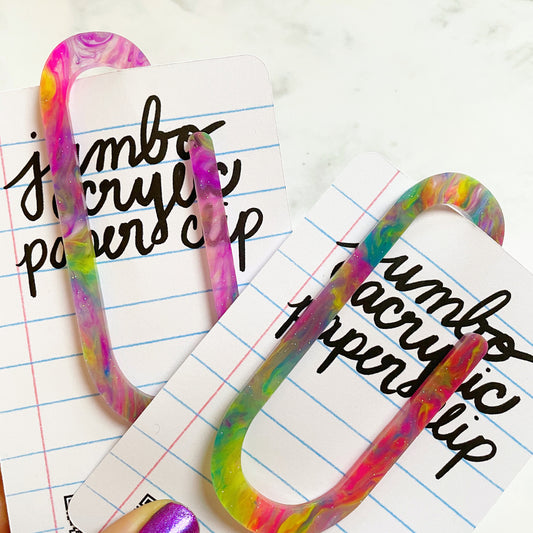 jumbo
acrylic
papers clip
jumbo
acrylic
papers clip